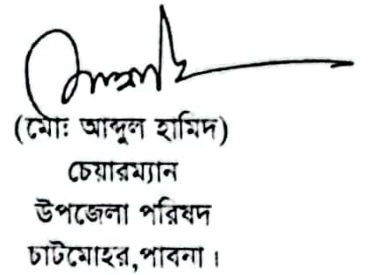 (মোঃ আব্দুল হামিদ)
চেয়ারম্যান
উপজেলা পরিষদ
চাটমোহর,পাবনা।